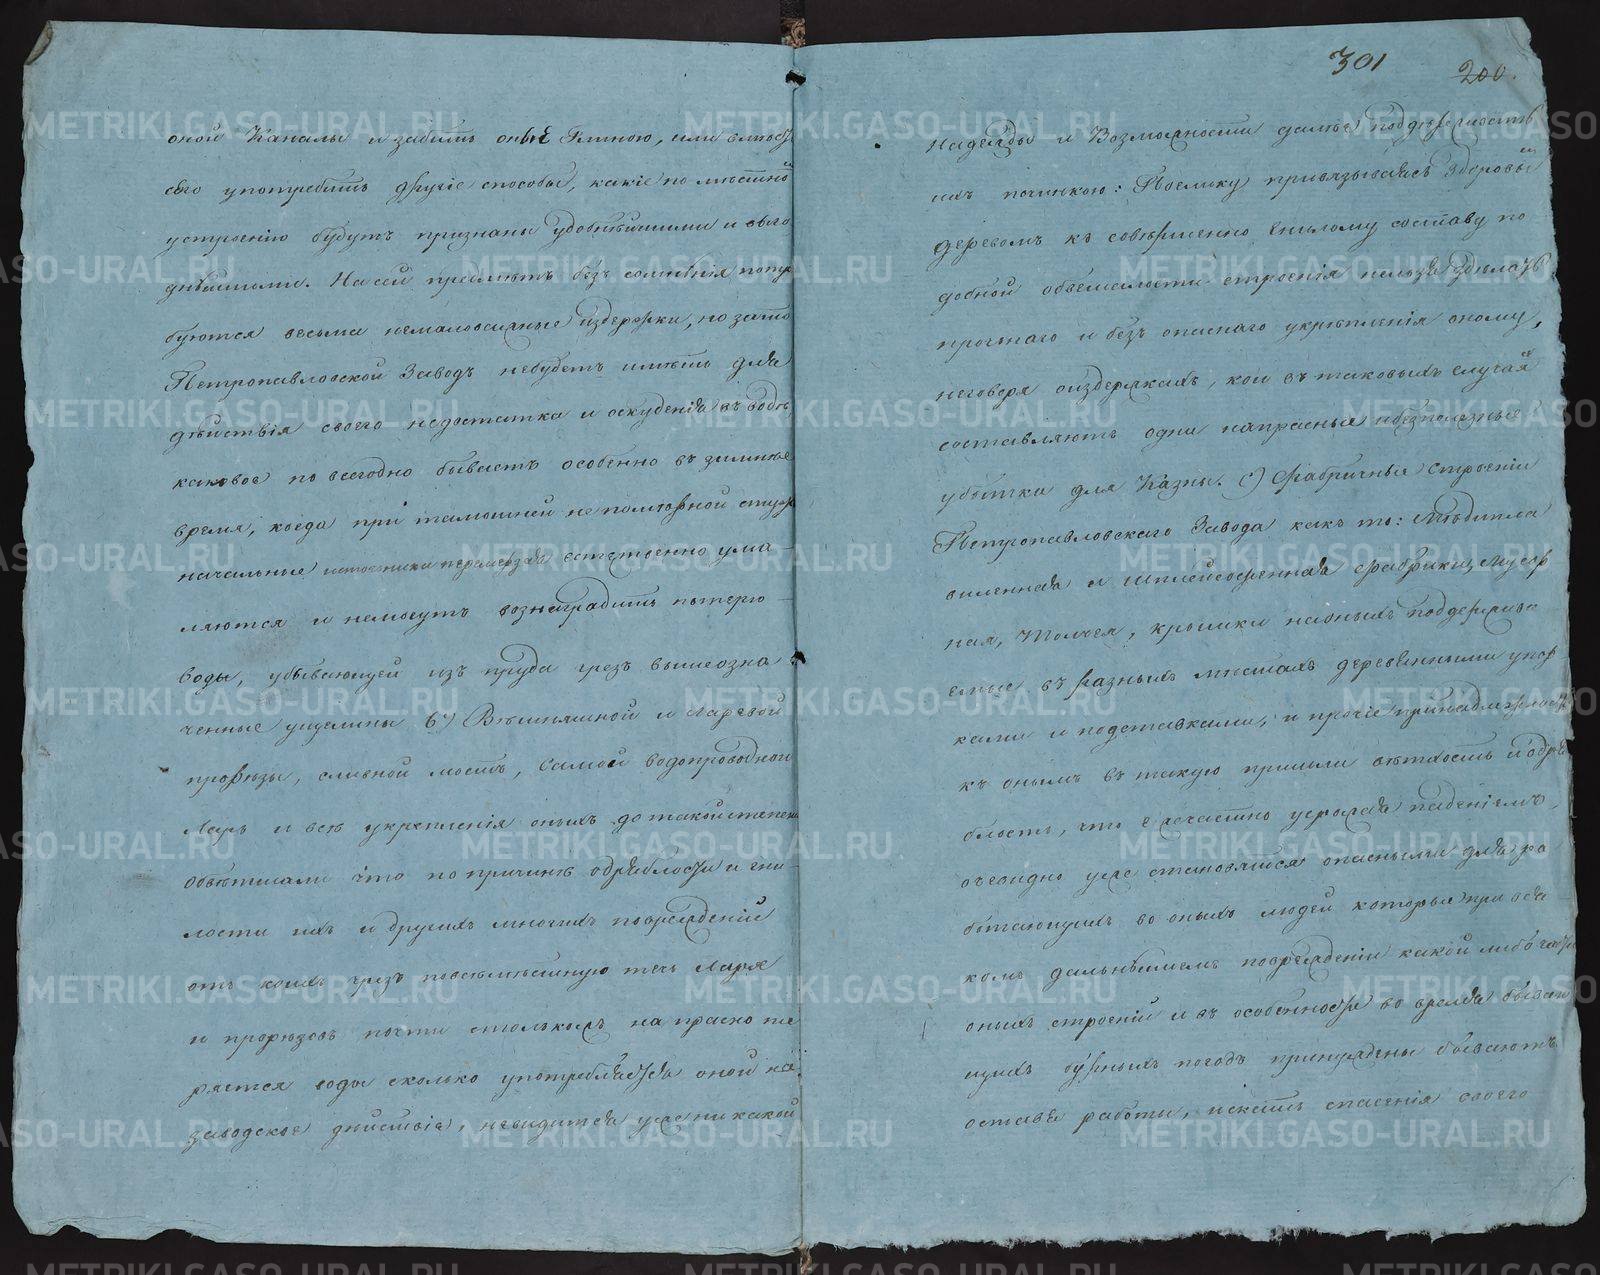 оной Каналы и забить оные Глиною, или вместо
сего употребить другіе способы, какіе по местно
устроенію будут признаны удобнѣйшими и выго
днѣйшими. На сей предметъ безъ сомнѣнія потре
буются весьма немаловажные издержки, но зато
Петропавловской Заводъ небудетъ имѣть для
дѣйствія своего недостатка и оскуденія въ водѣ
каковое по всегодно бываетъ особенно въ зимнѣе
время, когда при тамошней непомѣрной стуже
начальные источники перемерзая естественно ума
ляются и немогутъ вознаградить потерю
воды, убывающей изъ пруда чрезъ вышеозна
ченные ущелины б) Вешнишной и Ларевой
прорѣзы, сливной мостъ, Самой водопроводной
Ларь и всѣ укрепленія оныхъ до такой степени
обветшали что по причинѣ одряблости и гни
лости ихъ и другихъ многихъ поврежденій
отъ коихъ чрезъ повсемѣстную течь Ларя
и прорѣзовъ почти столькожъ напрасно те
ряется воды сколько употребляется оной на
заводское дѣйствіе, невидится уже никакой
301
200.
надежды и Возможности далѣе поддерживать
ихъ починкою: Поелику привязываясь здоровымъ
деревомъ къ совершенно гнилому составу по
добной обвешалости строенія нельзя здѣлать
прочнаго и безъ опаснаго укрѣпленія оному,
неговоря о издержкахъ, кои въ таковыхъ случая
составляютъ одни напрасные и безполезные
убытки для Казны. в) Фабричные Строеніи
Петропавловскаго Завода какъ то: Мѣдипла
виленная и шплейзофенная фабрики, Мусор
ная, Толчея, крышки на оныхъ поддержива
емые въ разныхъ мѣстахъ деревянными упор
ками и подставками, и прочіе принадлежности
къ онымъ въ такую пришли ветхость и дря
блость, что ежечастно угрожая паденіемъ,
очевидно уже становятся опасными для ра
ботающихъ во оныхъ людей которые при вся
комъ дальнѣйшемъ поврежденіи какой либо части
оныхъ строеній и въ особенности во время бываю
щихъ бурныхъ погодъ принуждены бываютъ
оставя работы, искать спасенія своего
METRIKI.GASO-URAL.RU